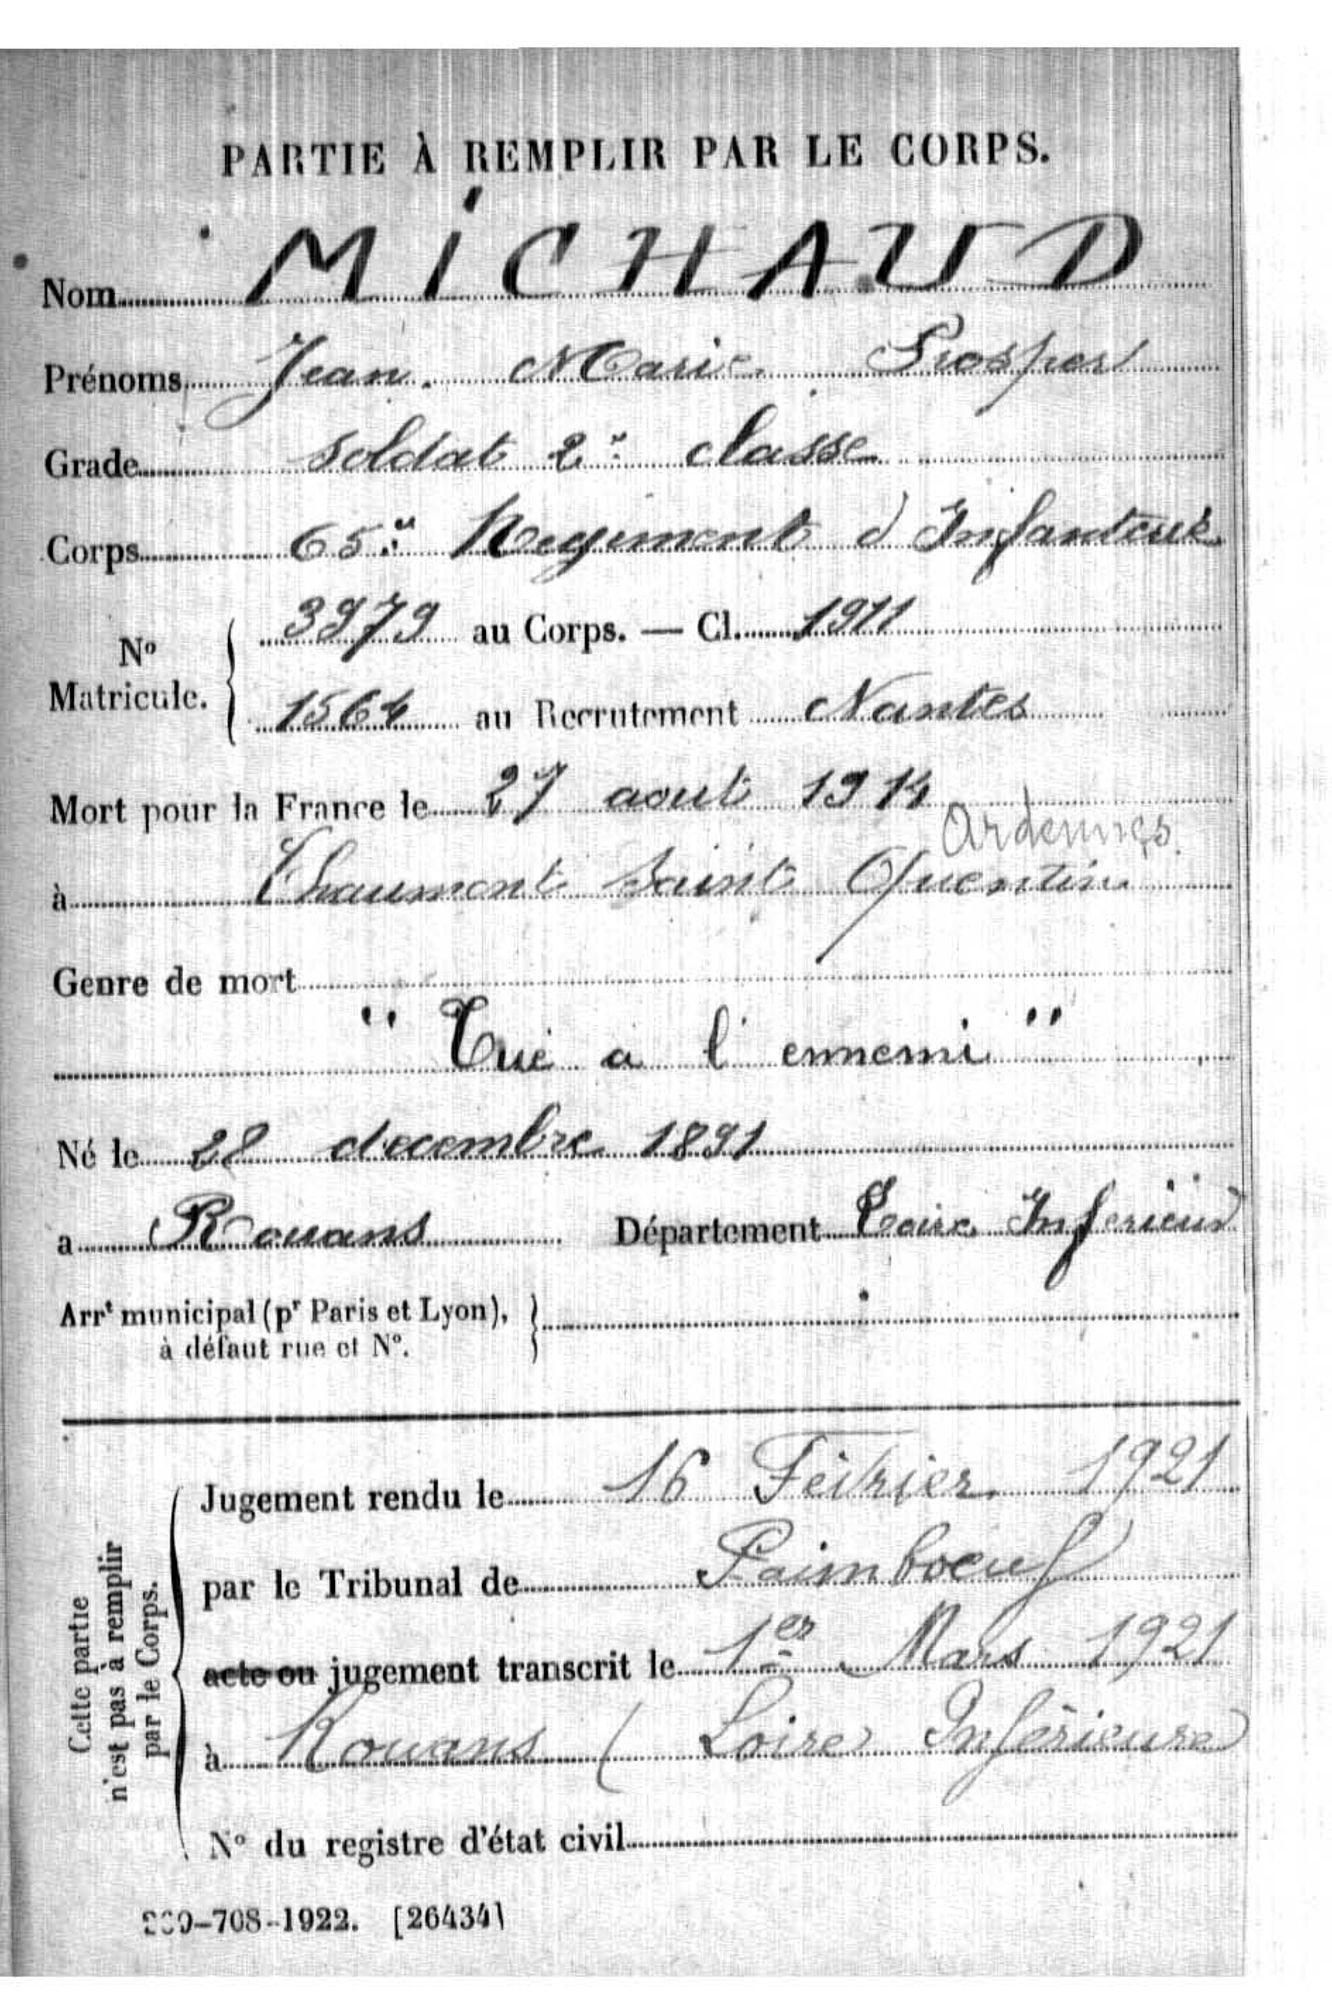 PARTIE À REMPLIR PAR LE CORPS.
Nom MICHAUD
Prénoms Jean Marie Prosper
Grade soldat 2e classe
Corps 65e Regiment d Infanterie
No Matricule. 3979 au Corps. — Cl. 1911
1564 au Recrutement Nantes
Mort pour la France le 27 aout 1914
Ardennes
à Chaumont Saint Quentin
Genre de mort
" Tué a l' ennemi "
Né le 28 decembre 1891
a Rouans Département Loire Inferieur
Arrt municipal (pr Paris et Lyon),
à défaut rue et N°.
Cette partie
n'est pas à remplir
par le Corps.
Jugement rendu le 16 Février 1921
par le Tribunal de Paimboeuf
acte ou jugement transcrit le 1er Mars 1921
à Rouans ( Loire Inférieure)
N° du registre d'état civil
708-1922. [26434]